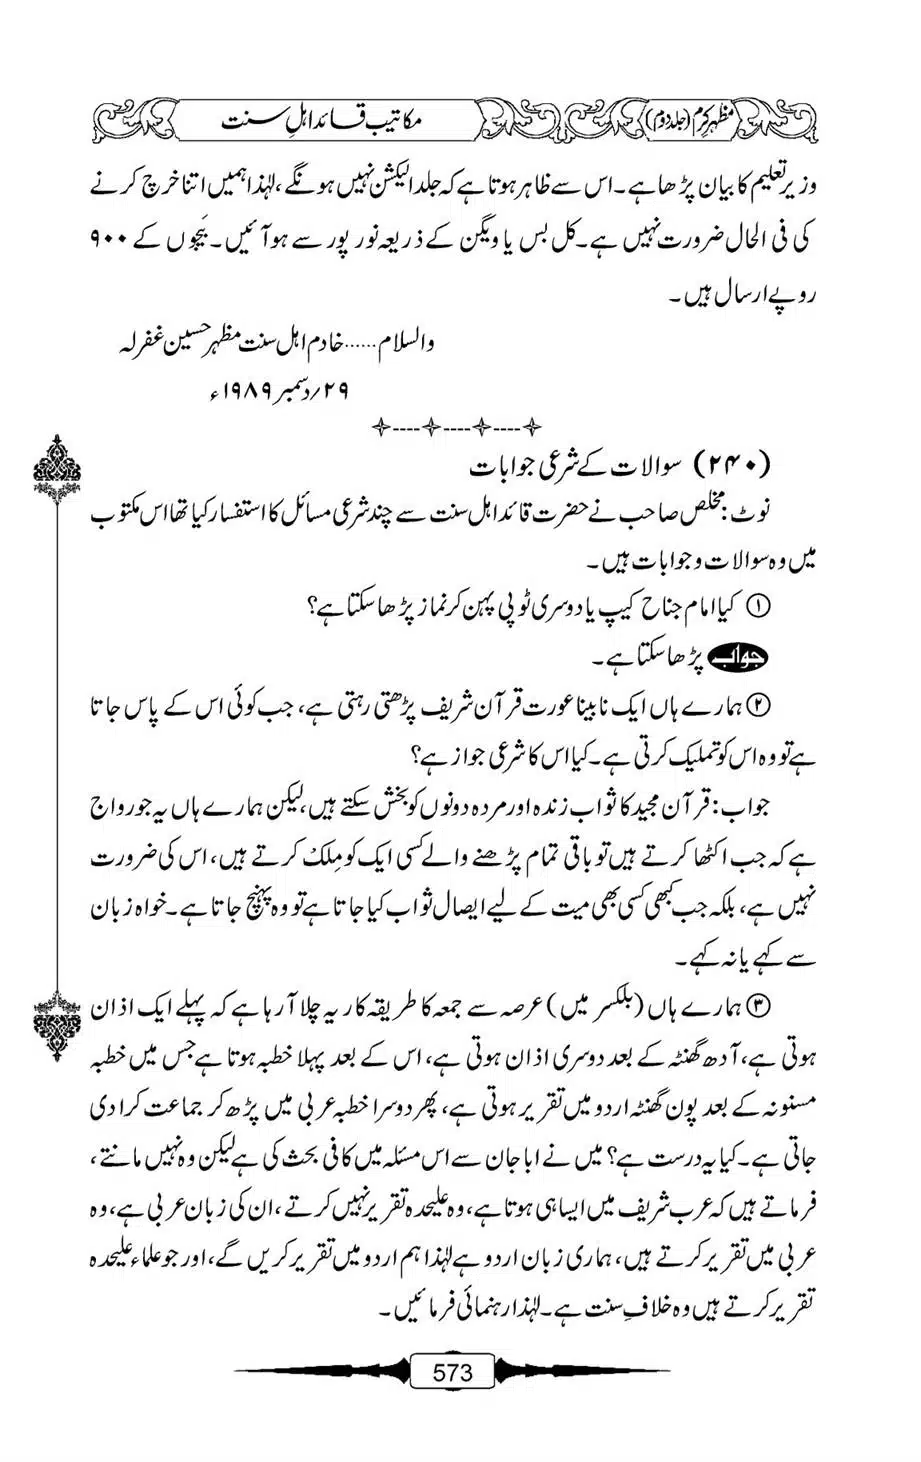 مظہرِ کرم (جلد دوم)
مکاتیب قائد اہلِ سنت
وزیر تعلیم کا بیان پڑھا ہے۔ اس سے ظاہر ہوتا ہے کہ جلد الیکشن نہیں ہونگے، لہٰذا ہمیں اتنا خرچ کرنے
کی فی الحال ضرورت نہیں ہے۔ کل بس یا ویگن کے ذریعہ نور پور سے ہو آئیں۔ بَیچوں کے ۹۰۰
روپے ارسال ہیں۔
والسلام......خادم اہل سنت مظہر حسین غفرلہ
۲۹/دسمبر ۱۹۸۹ء
(۲۴۰) سوالات کے شرعی جوابات
نوٹ: مخلص صاحب نے حضرت قائد اہل سنت سے چند شرعی مسائل کا استفسار کیا تھا اس مکتوب
میں وہ سوالات و جوابات ہیں۔
① کیا امام جناح کیپ یا دوسری ٹوپی پہن کر نماز پڑھا سکتا ہے؟
جواب پڑھا سکتا ہے۔
② ہمارے ہاں ایک نابینا عورت قرآن شریف پڑھتی رہتی ہے، جب کوئی اس کے پاس جاتا
ہے تو وہ اس کو تملیک کرتی ہے۔ کیا اس کا شرعی جواز ہے؟
جواب: قرآن مجید کا ثواب زندہ اور مردہ دونوں کو بخش سکتے ہیں، لیکن ہمارے ہاں یہ جو رواج
ہے کہ جب اکٹھا کرتے ہیں تو باقی تمام پڑھنے والے کسی ایک کو مِلکْ کرتے ہیں، اس کی ضرورت
نہیں ہے، بلکہ جب کبھی کسی بھی میت کے لیے ایصال ثواب کیا جاتا ہے تو وہ پہنچ جاتا ہے۔ خواہ زبان
سے کہے یا نہ کہے۔
③ ہمارے ہاں (بلکسر میں) عرصہ سے جمعہ کا طریقہ کار یہ چلا آ رہا ہے کہ پہلے ایک اذان
ہوتی ہے، آدھ گھنٹہ کے بعد دوسری اذان ہوتی ہے، اس کے بعد پہلا خطبہ ہوتا ہے جس میں خطبہ
مسنونہ کے بعد پون گھنٹہ اردو میں تقریر ہوتی ہے، پھر دوسرا خطبہ عربی میں پڑھ کر جماعت کرا دی
جاتی ہے۔ کیا یہ درست ہے؟ میں نے ابا جان سے اس مسئلہ میں کافی بحث کی ہے لیکن وہ نہیں مانتے،
فرماتے ہیں کہ عرب شریف میں ایسا ہی ہوتا ہے، وہ علیحدہ تقریر نہیں کرتے، ان کی زبان عربی ہے، وہ
عربی میں تقریر کرتے ہیں، ہماری زبان اردو ہے لہٰذا ہم اردو میں تقریر کریں گے، اور جو علماء علیحدہ
تقریر کرتے ہیں وہ خلافِ سنت ہے۔ لہٰذا رہنمائی فرمائیں۔
573